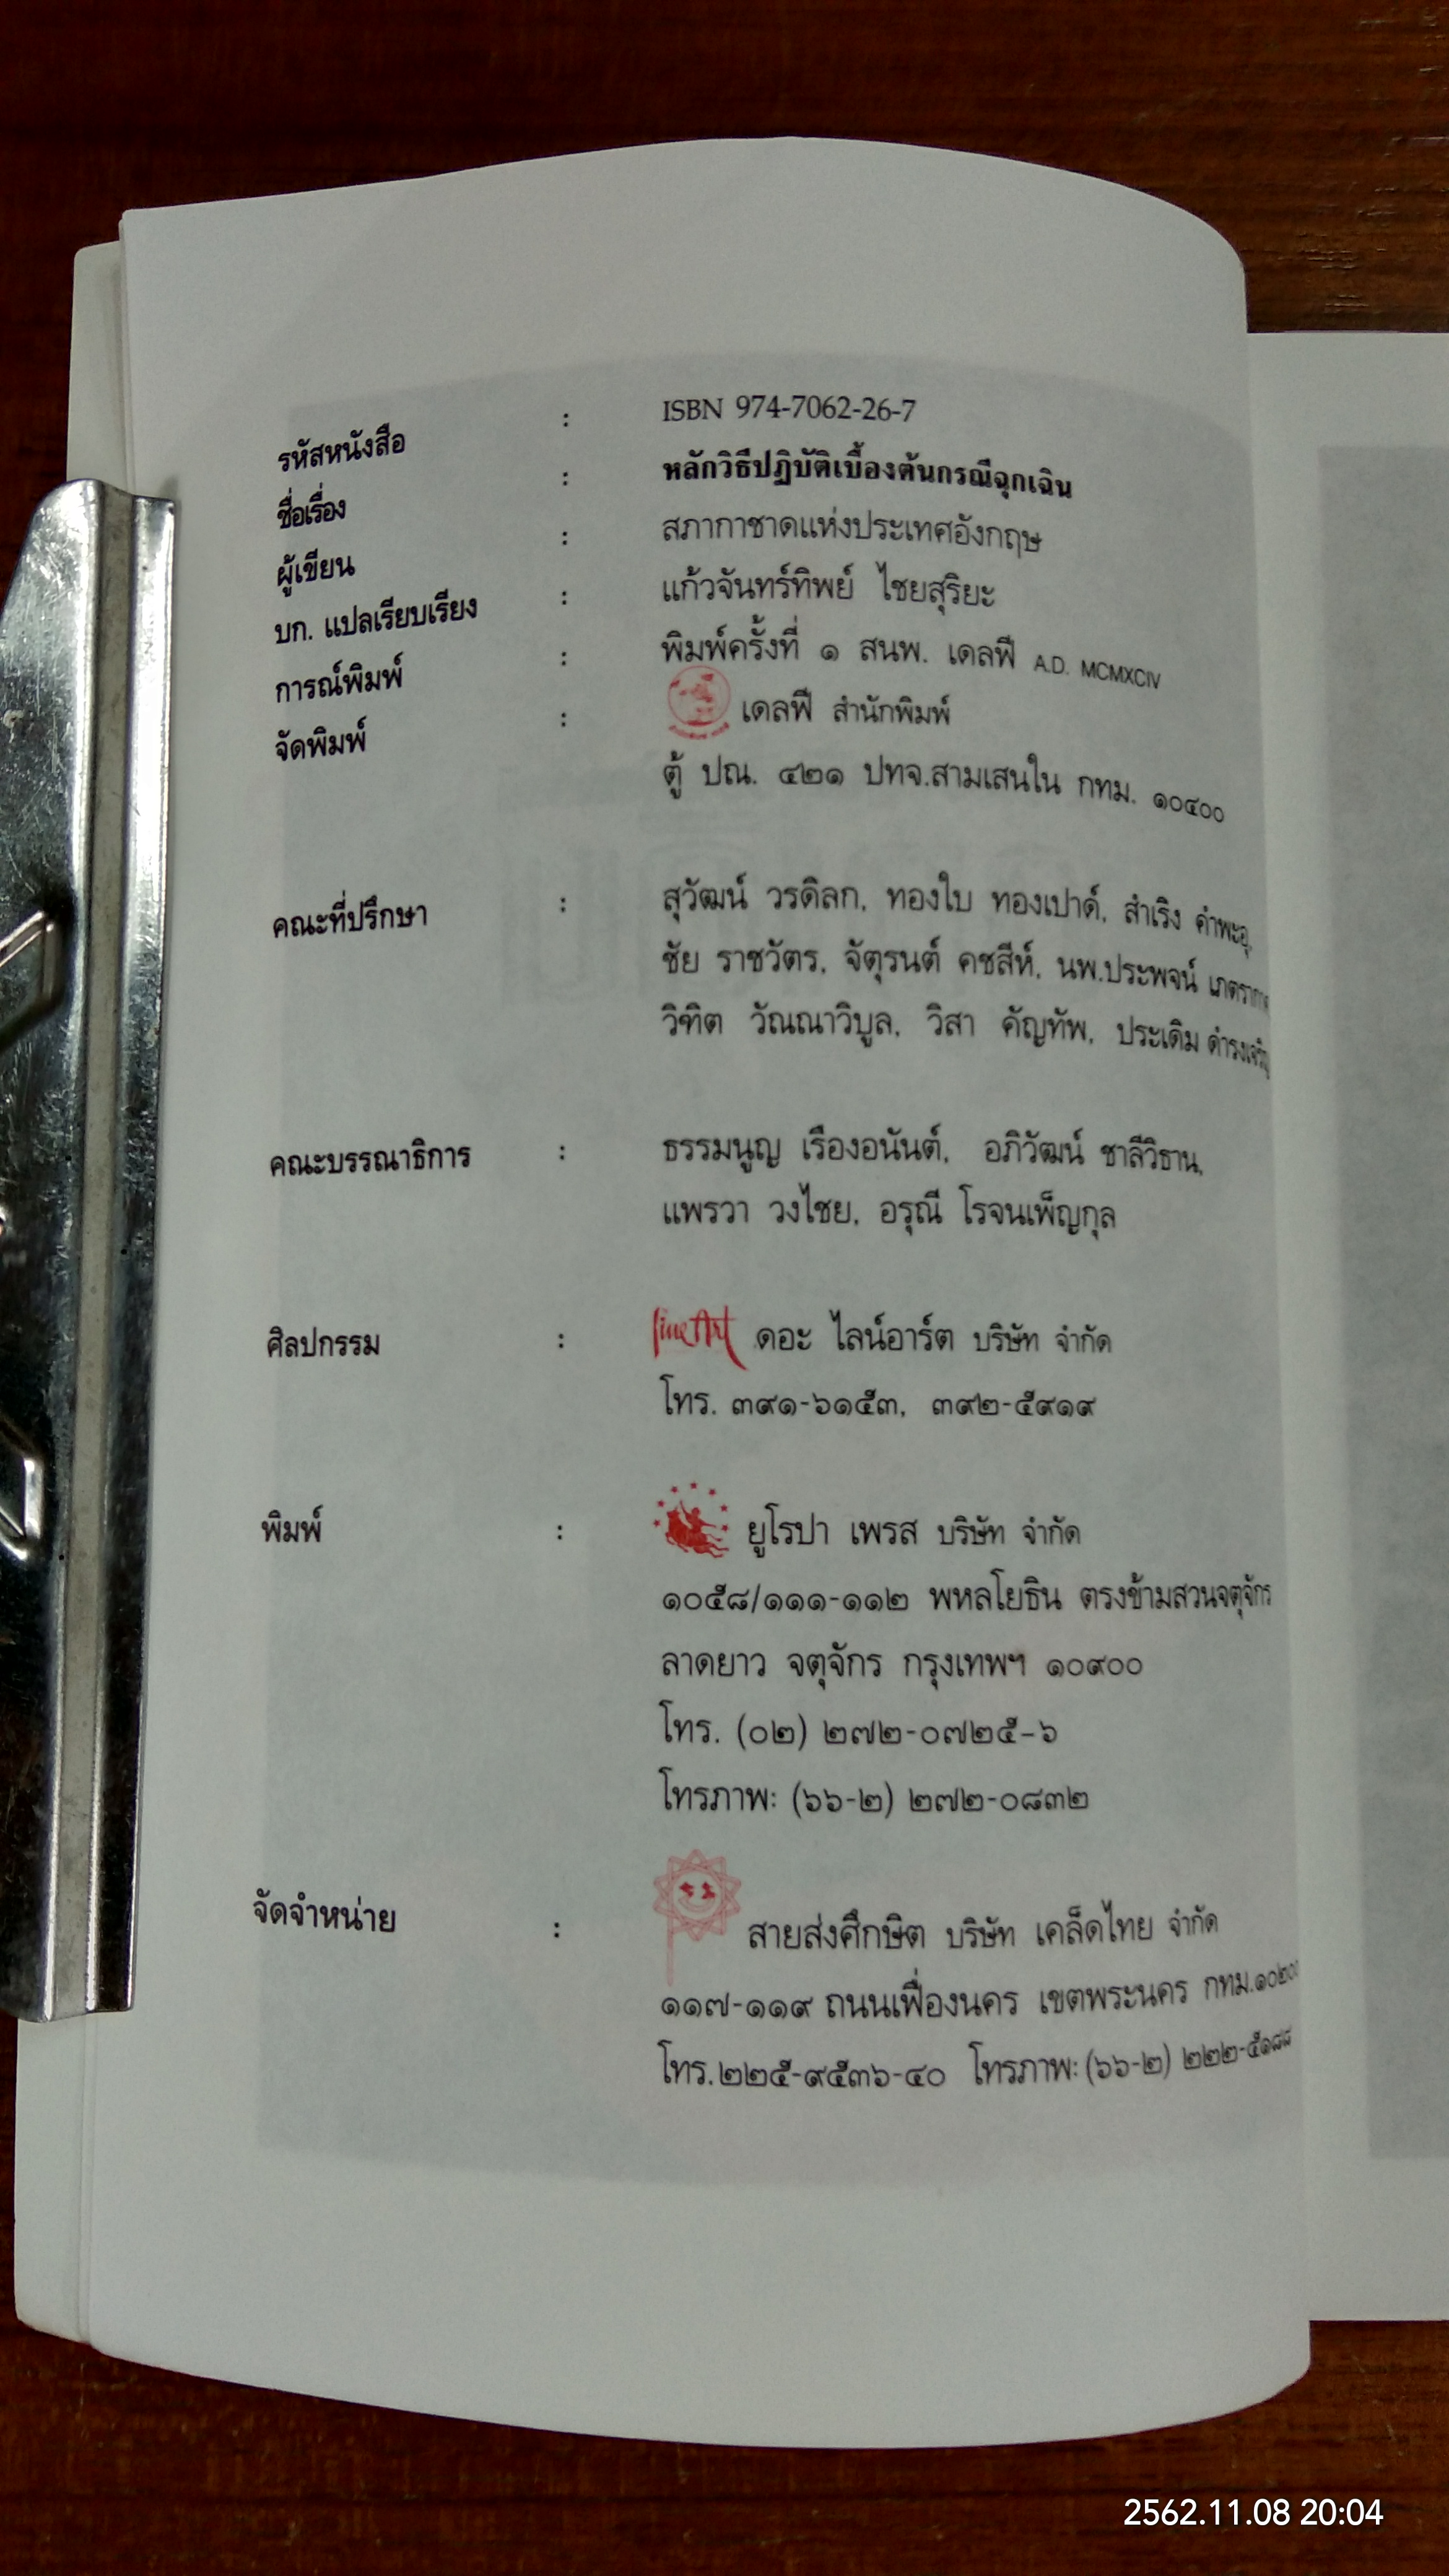 รหัสหนังสือ : ISBN 974-7062-26-7
ชื่อเรื่อง : หลักวิธีปฏิบัติเบื้องต้นกรณีฉุกเฉิน
ผู้เขียน : สภากาชาดแห่งประเทศอังกฤษ
บก. แปลเรียบเรียง : แก้วจันทร์ทิพย์ ไชยสุริยะ
การณ์พิมพ์ : พิมพ์ครั้งที่ ๑ สนพ. เดลฟี A.D. MCMXCIV
จัดพิมพ์ : เดลฟี สำนักพิมพ์
ตู้ ปณ. ๔๒๑ ปทจ.สามเสนใน กทม. ๑๐๔๐๐
คณะที่ปรึกษา : สุวัฒน์ วรดิลก, ทองใบ ทองเปาด์, สำเริง คำพะอุ,
ชัย ราชวัตร, จัตุรนต์ คชสีห์, นพ.ประพจน์
วิฑิต วัณณาวิบูล, วิสา คัญทัพ, ประเดิม
คณะบรรณาธิการ : ธรรมนูญ เรืองอนันต์, อภิวัฒน์ ชาลีวิธาน,
แพรวา วงไชย, อรุณี โรจนเพ็ญกุล
ศิลปกรรม : lineArt ดอะ ไลน์อาร์ต บริษัท จำกัด
โทร. ๓๙๑-๖๑๕๓, ๓๙๒-๕๙๑๙
พิมพ์ : ยูโรปา เพรส บริษัท จำกัด
๑๐๕๘/๑๑๑-๑๑๒ พหลโยธิน ตรงข้ามสวนจตุจักร
ลาดยาว จตุจักร กรุงเทพฯ ๑๐๙๐๐
โทร. (๐๒) ๒๗๒-๐๗๒๕-๖
โทรภาพ: (๖๖-๒) ๒๗๒-๐๘๓๒
จัดจำหน่าย : สายส่งศึกษิต บริษัท เคล็ดไทย จำกัด
๑๑๗-๑๑๙ ถนนเฟื่องนคร เขตพระนคร กทม.๑๐๒๐๐
โทร.๒๒๕-๙๕๓๖-๔๐ โทรภาพ: (๖๖-๒) ๒๒๒-๕๑๘๘
2562.11.08 20:04